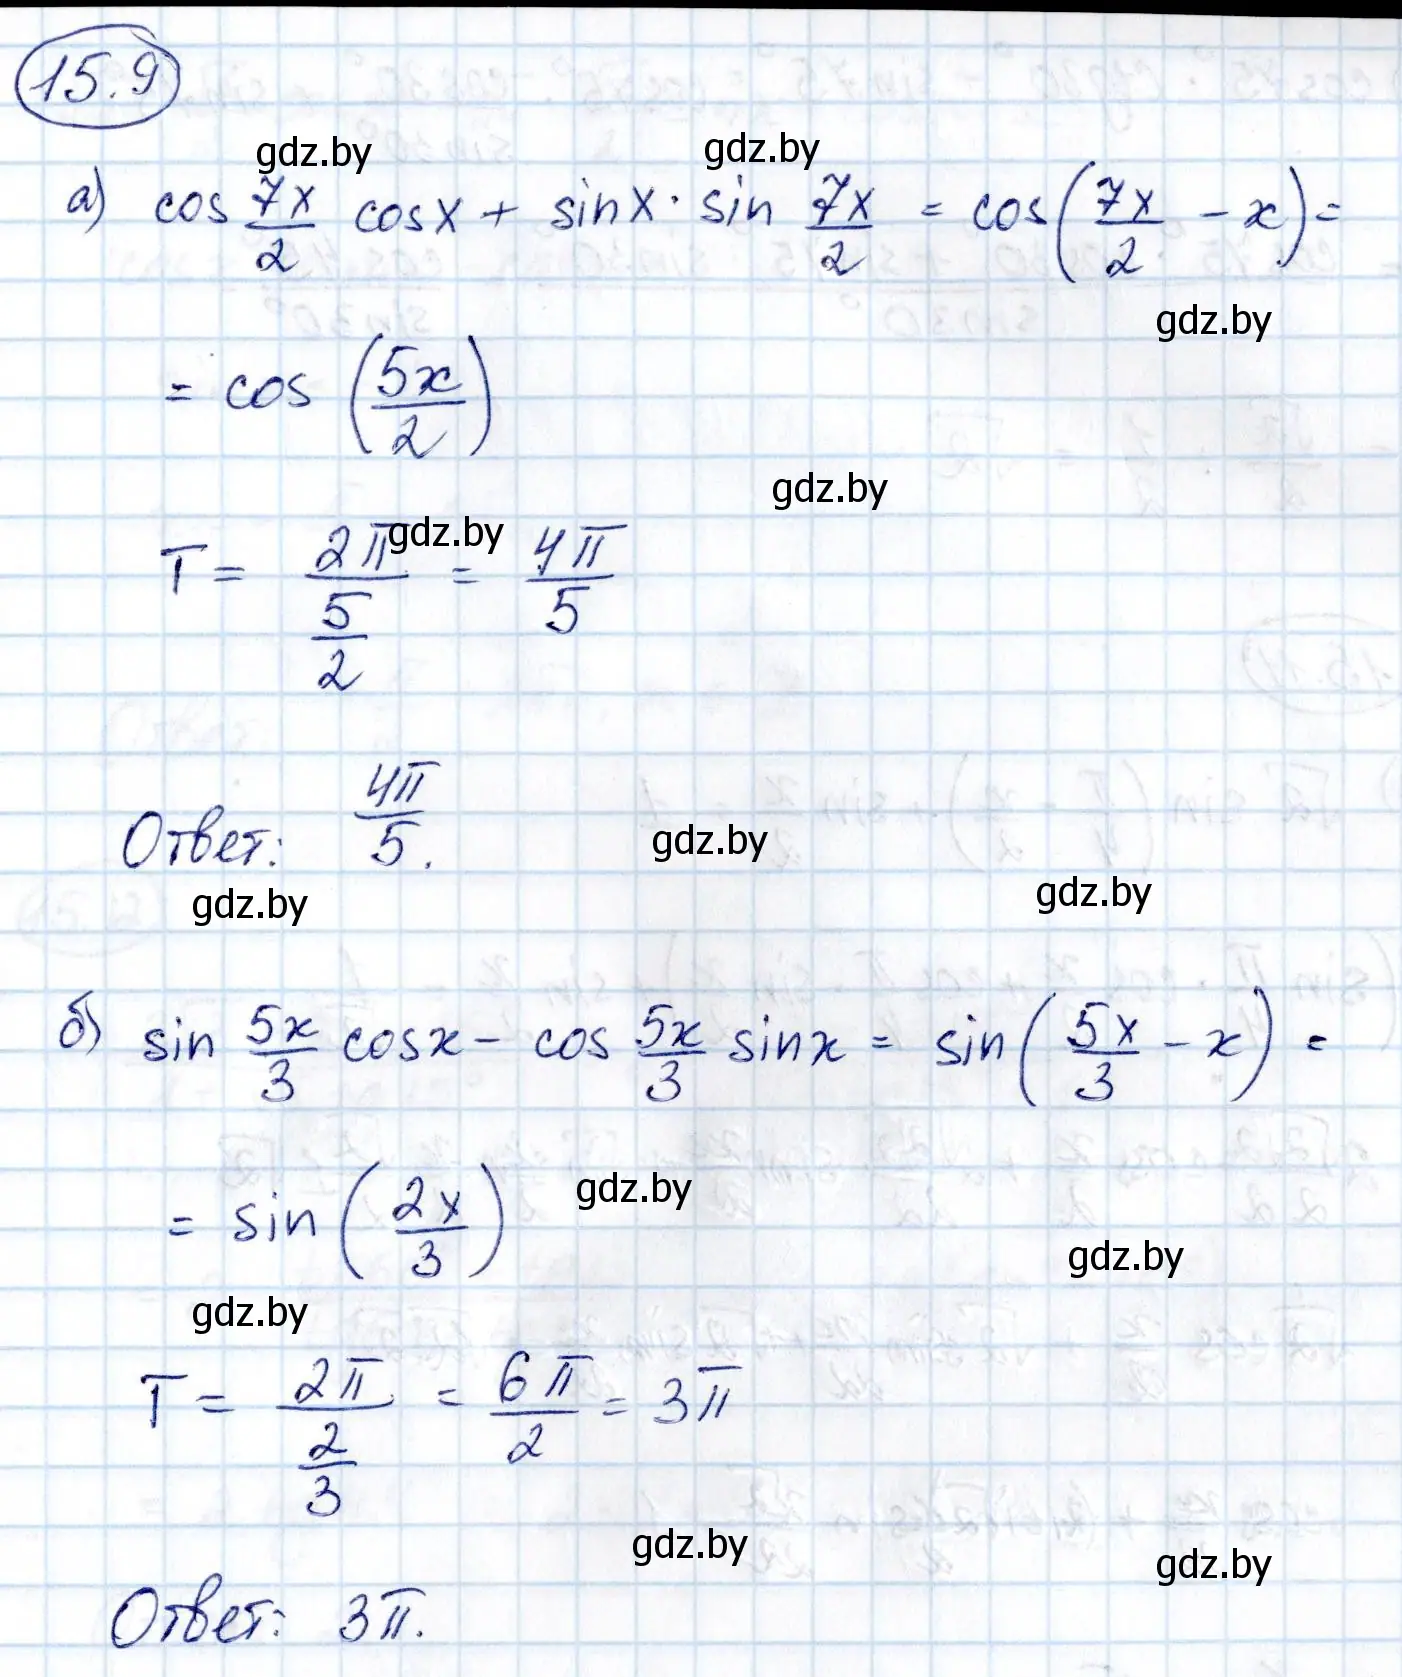 15.9
gdz.by gdz.by
а) cos 7x/2 cosx + sinx · sin 7x/2 = cos(7x/2 - x) =
gdz.by
= cos (5x/2)
gdz.by
gdz.by
T = 2π/(5/2) = 4π/5
Ответ: 4π/5.
gdz.by
gdz.by
gdz.by
б) sin 5x/3 cosx - cos 5x/3 sinx = sin(5x/3 - x) =
gdz.by
= sin (2x/3)
gdz.by
gdz.by
T = 2π/(2/3) = 6π/2 = 3π
gdz.by
gdz.by
Ответ: 3π.